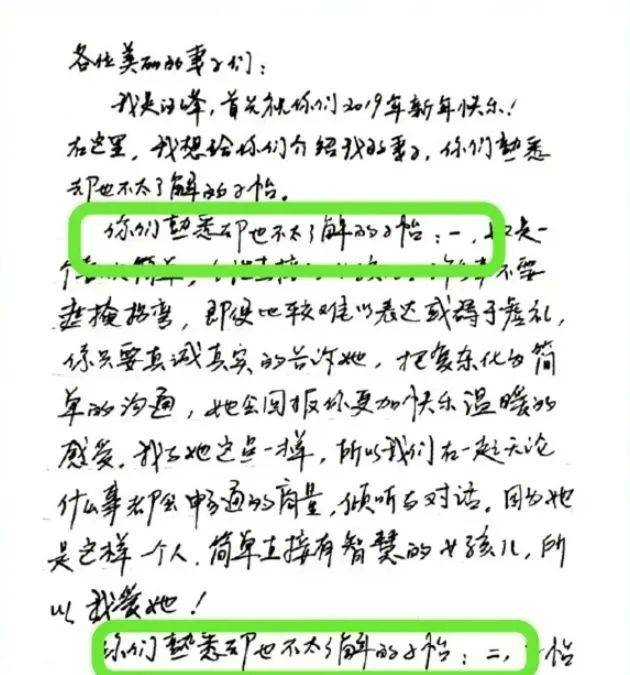 各位美丽的妻子们：
我是汪峰，首先祝你们2019年新年快乐！
在这里，我想给你们介绍我的妻子，你们熟悉
却也不太了解的子怡。
你们熟悉却也不太了解的子怡：一，她是一
个 简单， 直接 不要
遮掩拐弯，即便比较难以表达或碍于虚礼，
你只要真诚真实的告诉她，把复杂化为简
单的沟通，她会回报你更加快乐温暖的
感受。我与她这点一样，所以我们在一起无论
什么事都会畅通的商量，倾听与对话。因为她
是这样一个人，简单直接有智慧的女孩儿，所
以我爱她！
你们熟悉却也不太了解的子怡：二，子怡